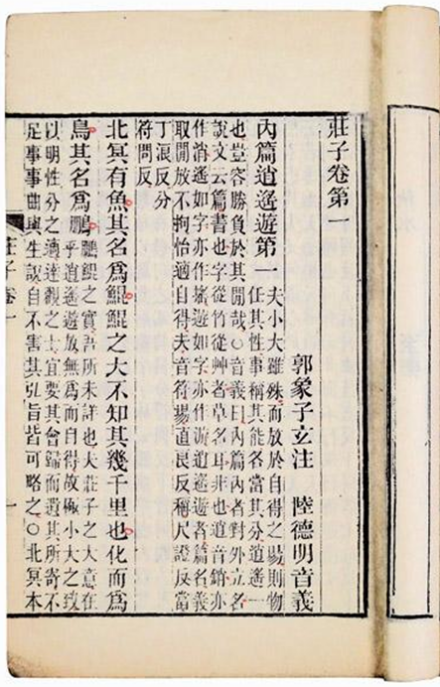 莊子卷第一
郭象子玄注 陸德明音義
內篇逍遙遊第一
夫小大雖殊而放於自得之場則物
任其性事稱其能各當其分逍遙一
也豈容勝負於其閒哉○音義曰內篇內者對外立名
說文云篇書也字從竹從艸者草名耳非也逍音銷亦
作消遙如字亦作搖遊如字亦作游逍遙遊者篇名義
取閒放不拘怡適自得夫音符場直良反稱尺證反當
丁浪反分
符問反
北冥有魚其名爲鯤鯤之大不知其幾千里也化而爲
鳥其名爲鵬
鵬鯤之實吾所未詳也夫莊子之大意在
乎逍遙遊放無爲而自得故極小大之致
以明性分之適達觀之士宜要其會歸而遺其所寄不
足事事曲與生說自不害其弘旨皆可略之○北冥本
莊子卷一
一